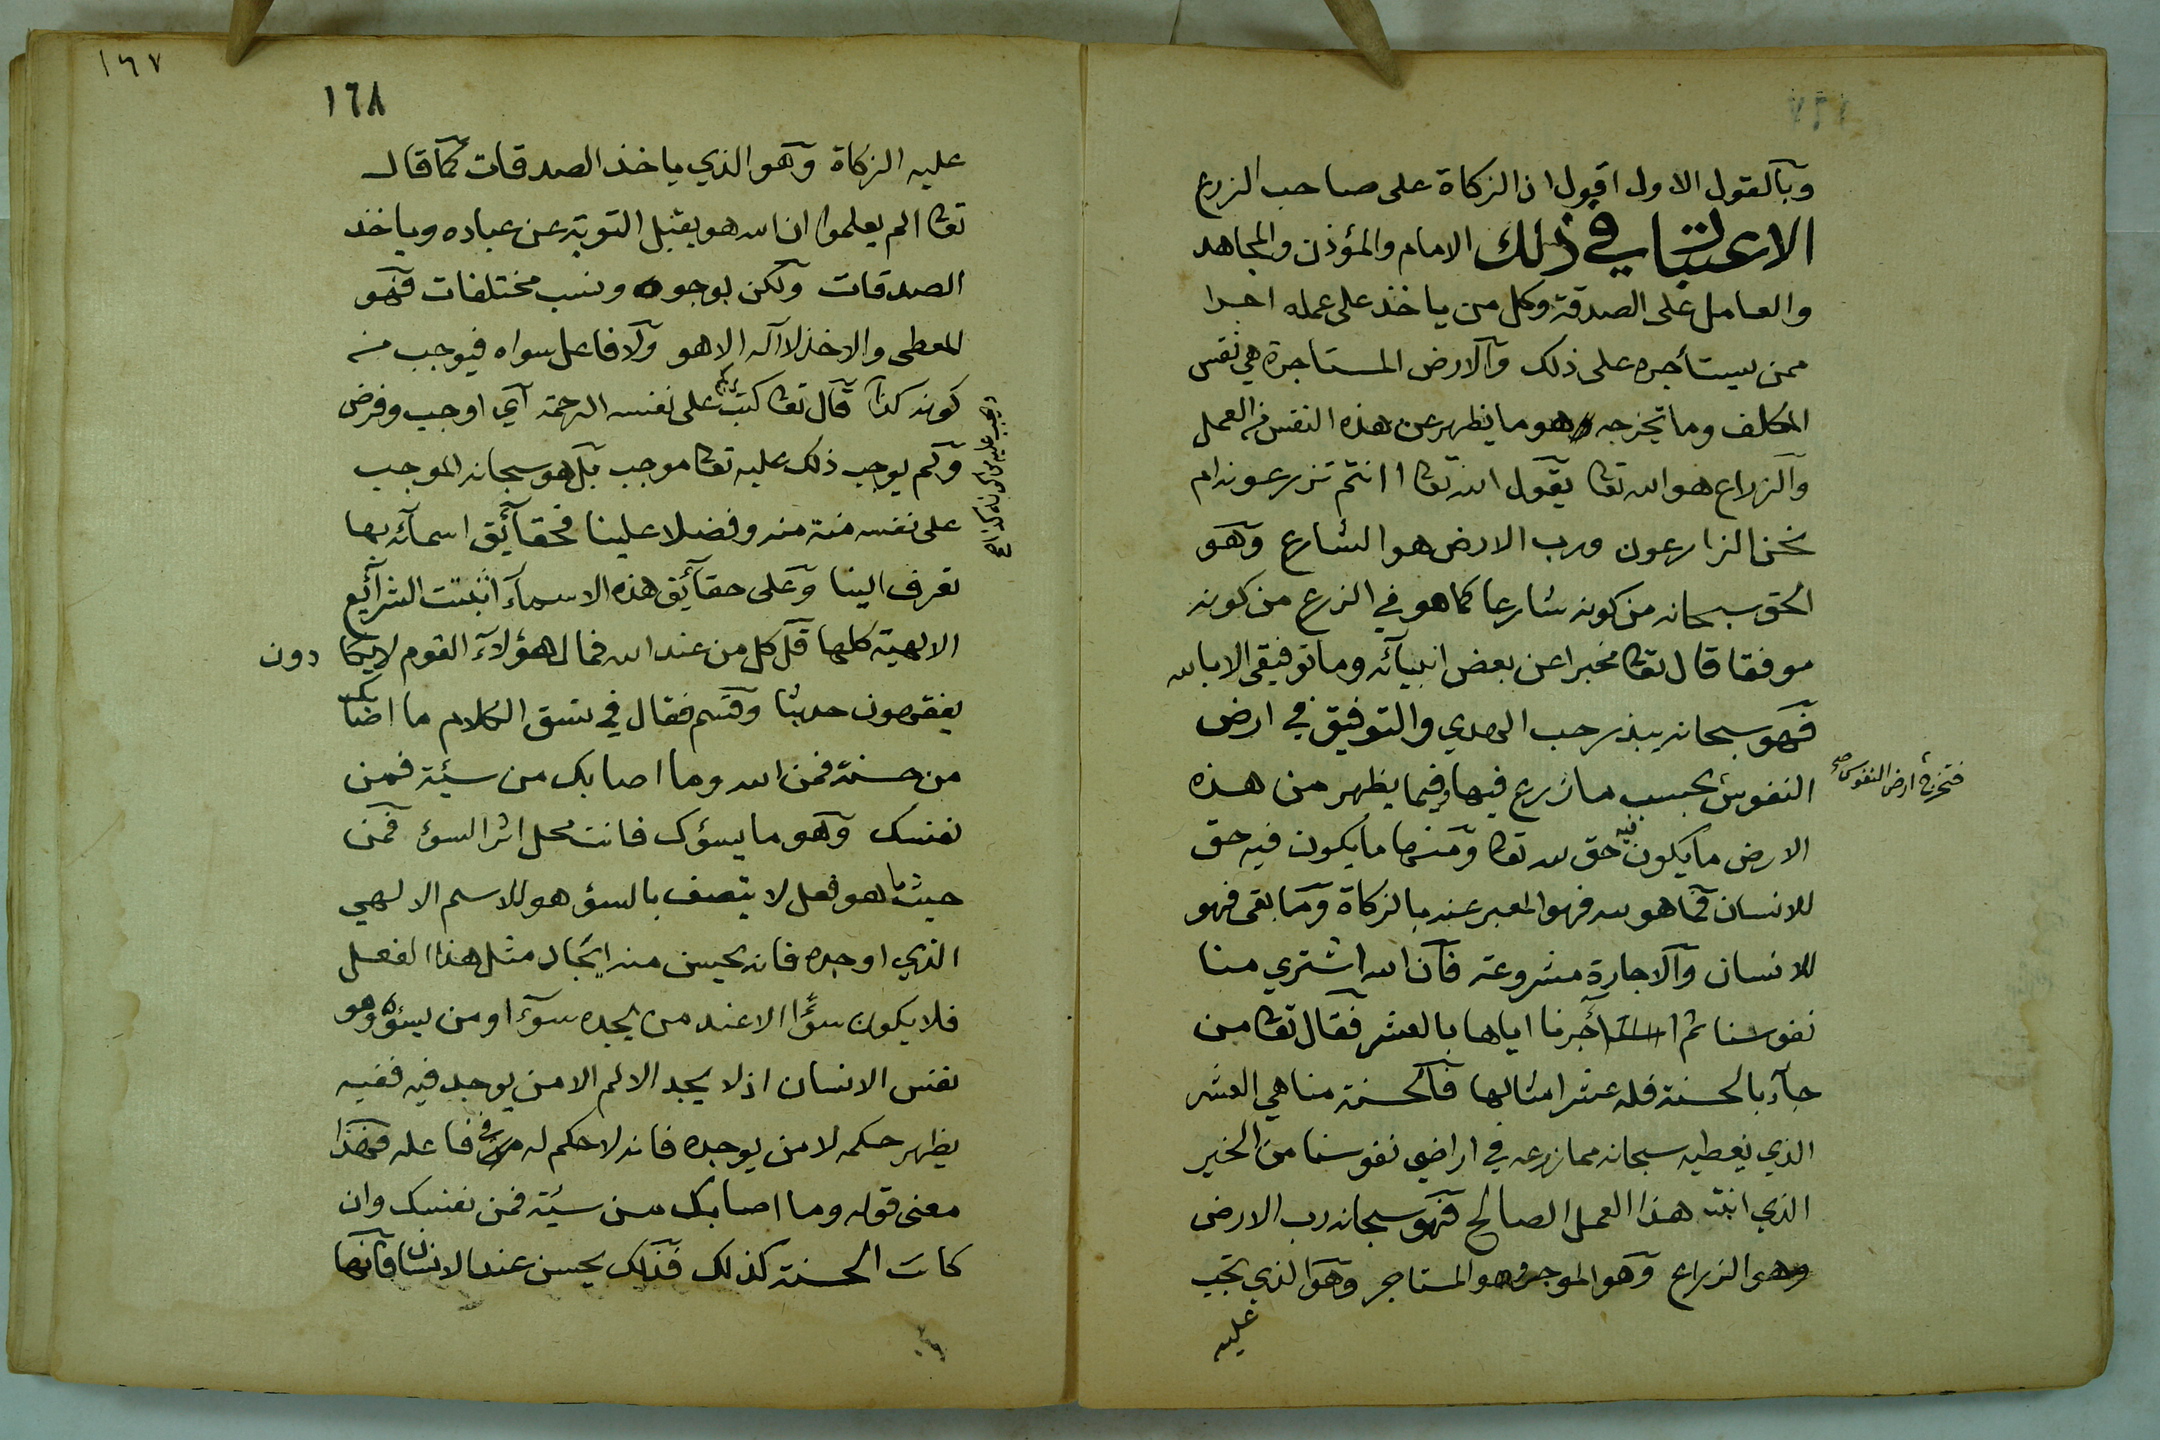 وبالقول الاول اقول ان الزكاة على صاحب الزرع
الاعتبار في ذلك الامام والمؤذن والمجاهد
والعامل على الصدقة وكل من ياخذ على عمله اجرا
ممن يستأجره على ذلك والارض المستاجرة هي نفس
المكلف وما تخرجه هو ما يظهر عن هذه النفس من العمل
والزراع هو الله تعا يقول الله تعا اانتم تزرعونه ام
نحن الزارعون ورب الارض هو الشارع وهو
الحق سبحانه من كونه شارعا كما هو في الزرع من كونه
موفقا قال تعا مخبرا عن بعض انبيآئه وما توفيقي الا بالله
فهو سبحانه يبذر حب الهدي والتوفيق في ارض
النفوس بحسب ما زرع فيها وفيما يظهر من هذه
فتخرج ارض النفوس صح
الارض ما يكون فيه حق لله تعا ومنها ما يكون فيه حق
للانسان فما هو لله فهو المعبر عنه بالزكاة وما بقى فهو
للانسان والاجارة مشروعة فان الله اشتري منا
نفوسنا ثم اجرنا اياها بالعشر فقال تعا من
جآء بالحسنة فله عشر امثالها فالحسنة منا هي العشر
الذي نعطيه سبحانه مما زرعه في اراضي نفوسنا من الخير
الذي انبت هذا العمل الصالح فهو سبحانه رب الارض
وهو الزراع وهو الموجر وهو المستاجر وهو الذي تجب
عليه
١٦٧
١٦٨
عليه الزكاة وهو الذي ياخذ الصدقات كما قال
تعا الم يعلموا ان الله هو يقبل التوبة عن عباده وياخذ
الصدقات ولكن بوجوه ونسب مختلفات فهو
المعطى والاخذ لا اله الا هو ولا فاعل سواه فيوجب من
كونه كذا قال تعا كتب ربكم على نفسه الرحمة اي اوجب وفرض
ويجب عليه من كونه كذا صح
ولم يوجب ذلك عليه تعا موجب بل هو سبحانه الموجب
على نفسه منة منه وفضلا علينا فحقآئق اسمآئه بها
تعرف الينا وعلى حقآئق هذه الاسمآء اثبتت الشرآئع
الالهية كلها قل كل من عند الله فمال هؤلآء القوم لا يكادون
يفقهون حديثا وقسم فقال في نسق الكلام ما اصابك
من حسنة فمن الله وما اصابك من سيئة فمن
نفسك وهو ما يسؤك فانت محل اثر السوء فمن
حيث ما هو فعل لا يتصف بالسؤ هو للاسم الالهي
الذي اوجده فانه يحسن منه ايجاد مثل هذا الفعل
فلا يكون سؤا الا عند من يجده سوآء او من يسؤه وهو
نفس الانسان اذ لا يجد الالم الا من يوجد فيه ففيه
يظهر حكمه لا من يوجده فانه لا حكم له في فاعله فهذا
معنى قوله وما اصابك من سيئة فمن نفسك وان
كانت الحسنة كذلك فذلك يحسن عند الانسان فانها